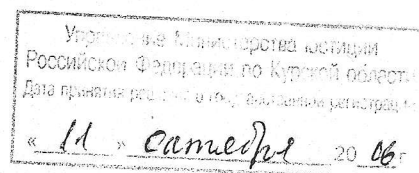 Управление Министерства юстиции
Российской Федерации по Курской области
Дата принятия о государственной
« 11 » октября 2006 г.